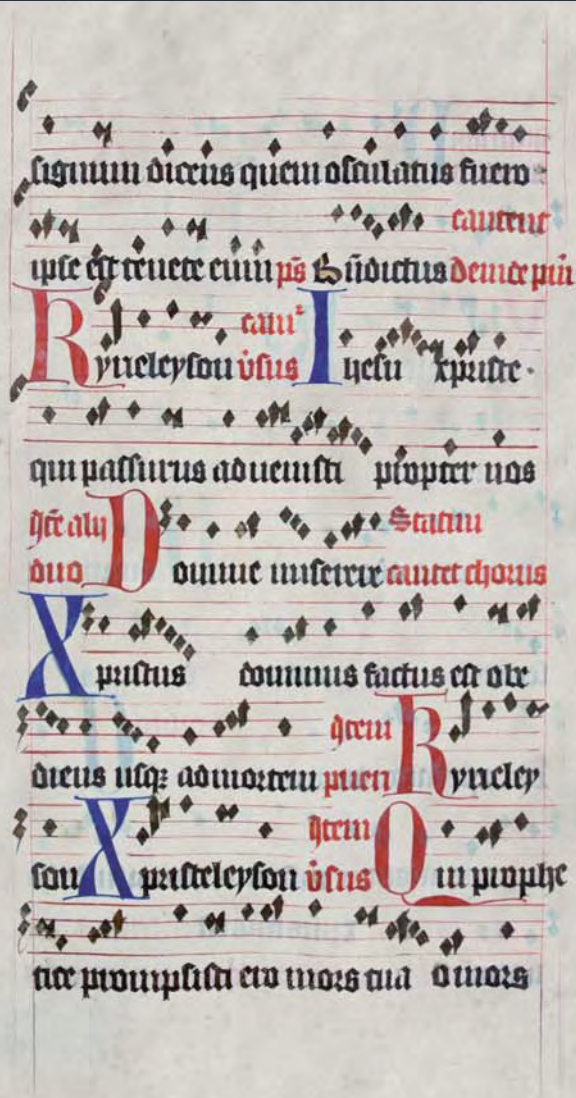 signum dicens quem osculatus fuero
ipse est tenete eum ps Bn̄dictus Deinde pūi
cant᷑
Kyrieleyson v̓sus Ihesu xpriste.
qui passurus advenisti propter nos
Itē alij
duo Domine miserere Statim cantet chorus
Xpristus dominus factus est obe
diens usqꝫ admortem Item pueri Kyrieley
son Xpristeleyson Item v̓sus Qui prophe
tice prompsisti ero mors tua o mors